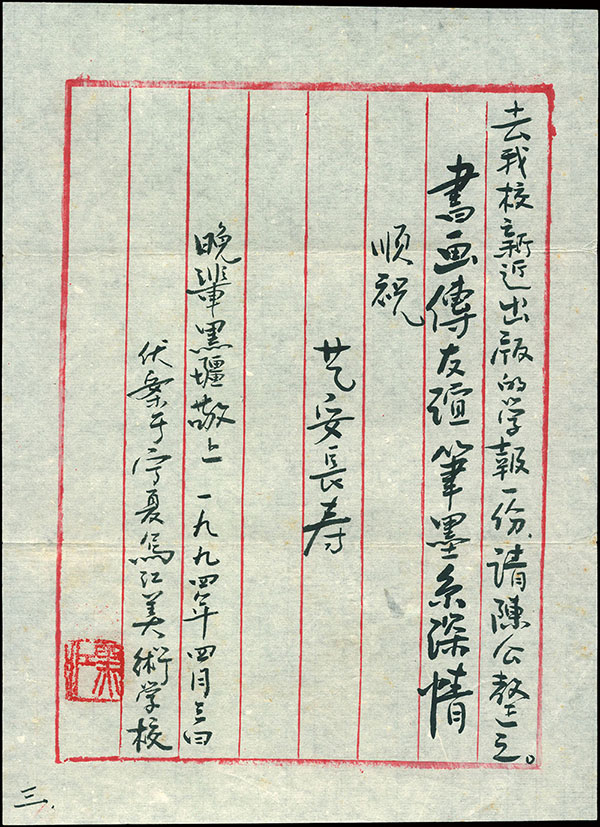 去我校新近出版的学報一份，請陳公整之。
書画傳友誼筆墨系深情
順祝
艺安長寿
晚輩黑疆敬上 一九九四年四月三日
伏案于宁夏烏江美術学校
三.